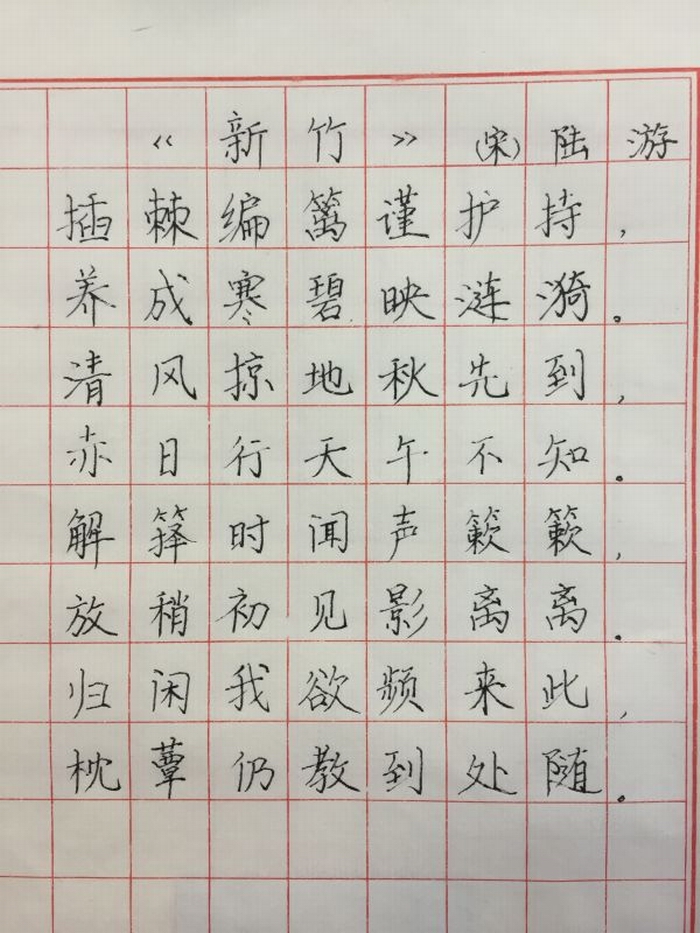 《新竹》(宋)陆游
插棘编篱谨护持，
养成寒碧映涟漪。
清风掠地秋先到，
赤日行天午不知。
解箨时闻声簌簌，
放稍初见影离离。
归闲我欲频来此，
枕蕈仍教到处随。